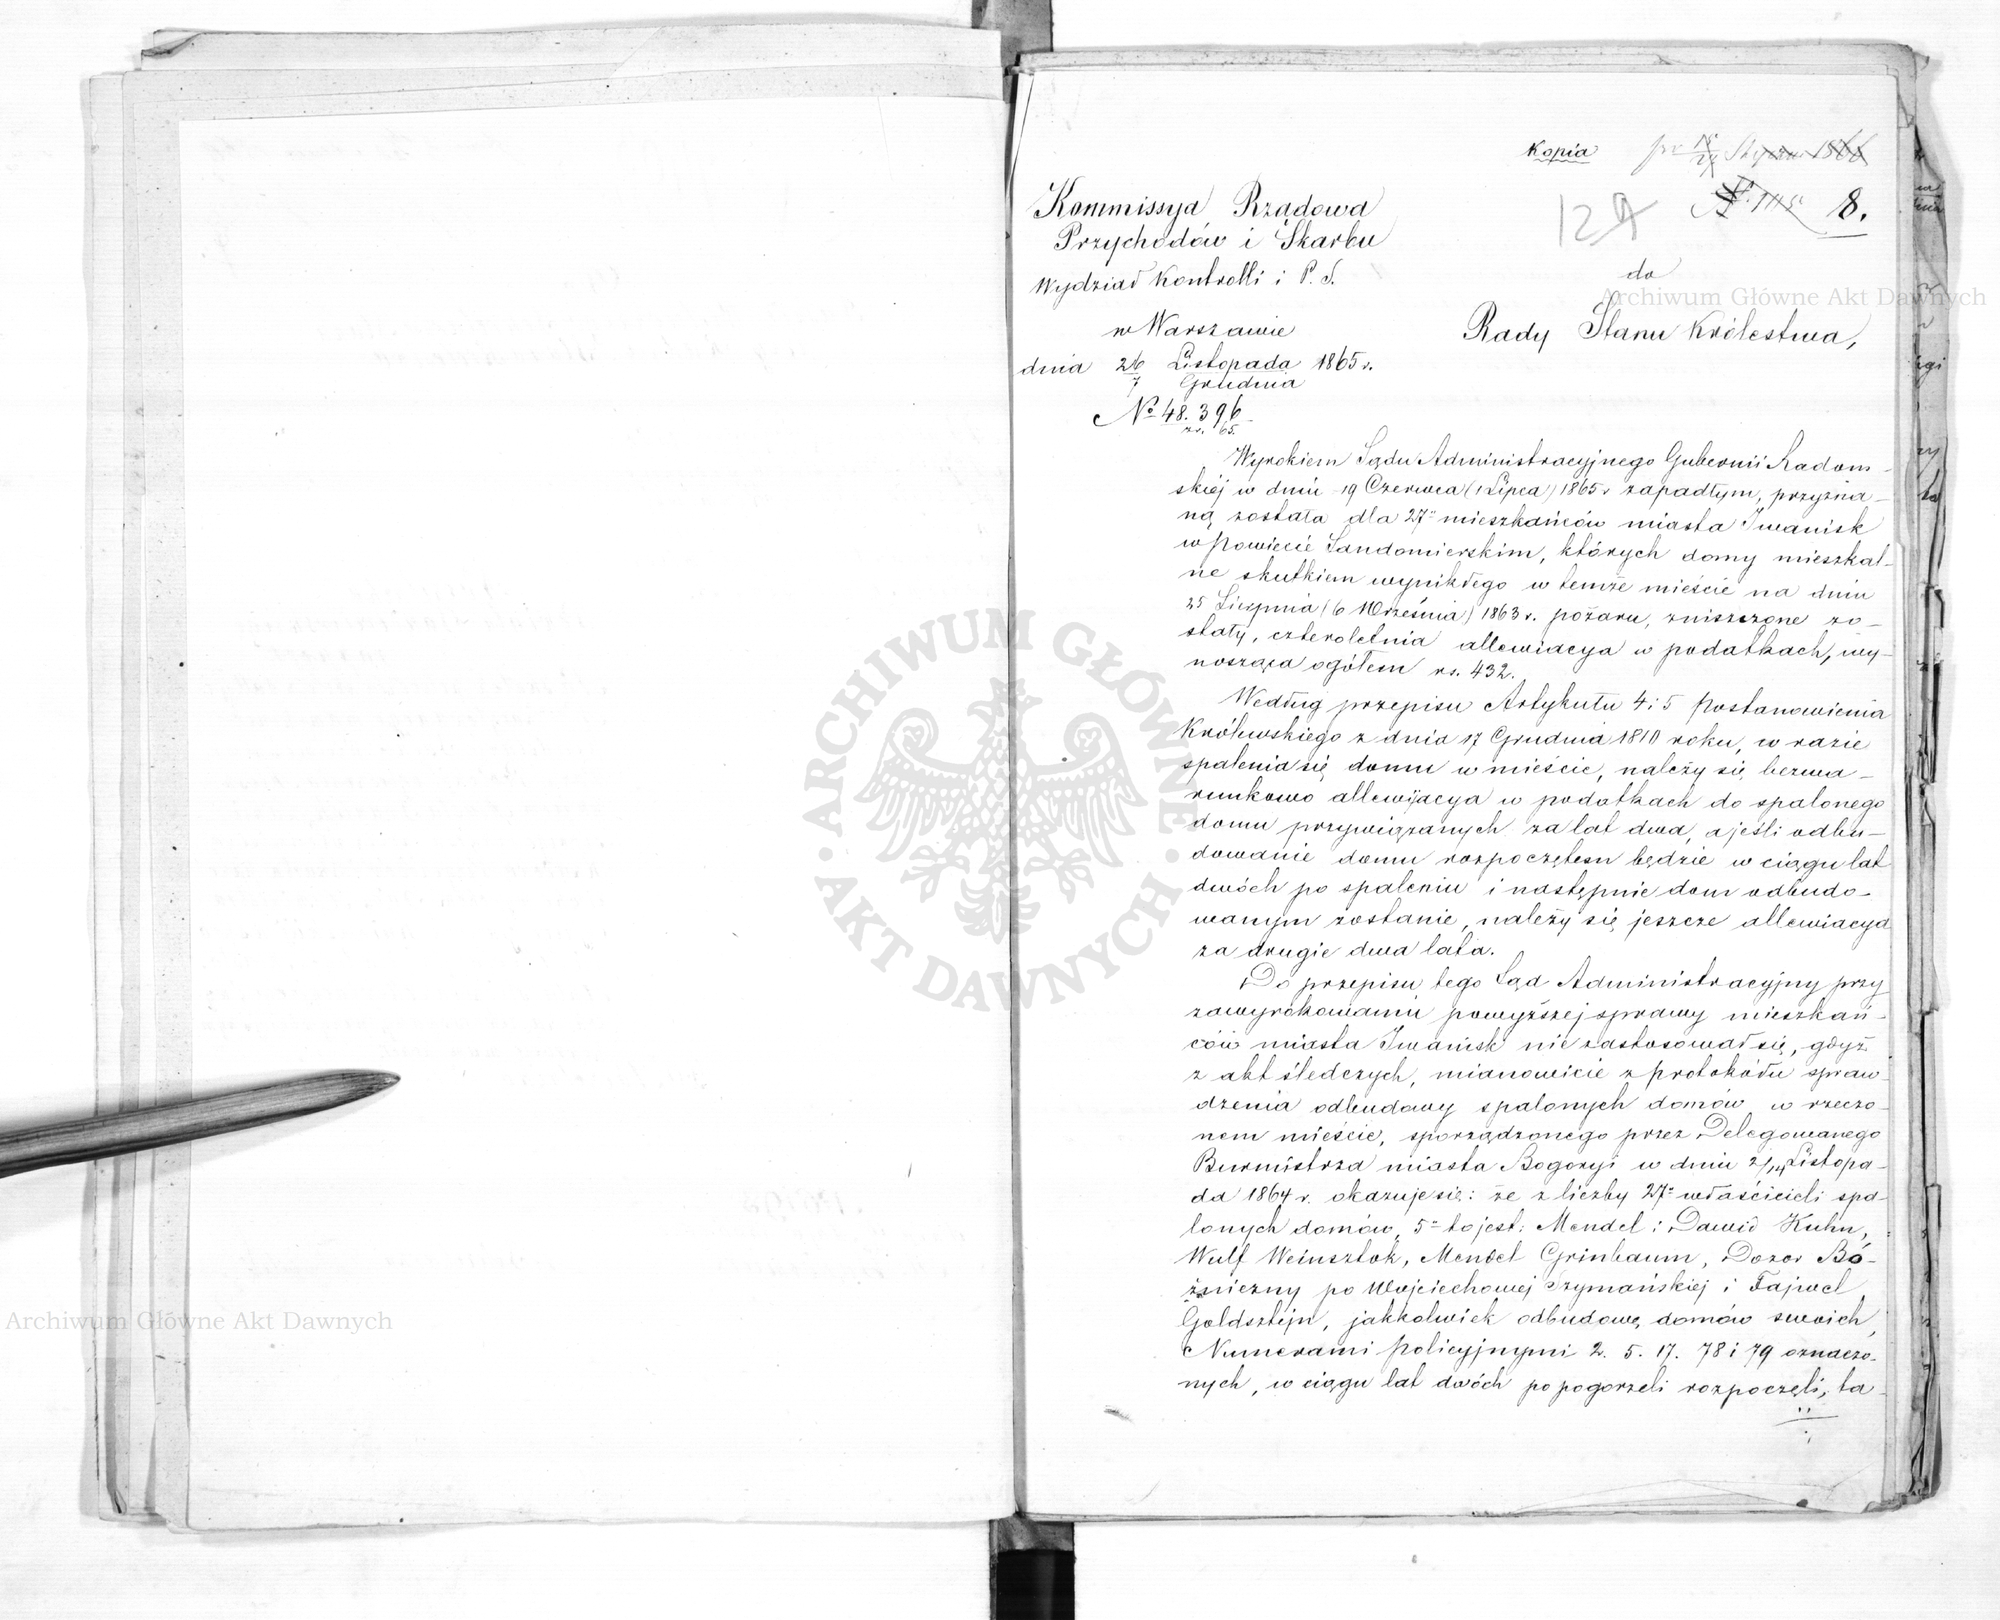 Kopia
8.
129
Kommissya Rządowa
Przychodów i Skarbu
Wydział Kontrolli i P. S.
w Warszawie
dnia 26/7 Listopada/Grudnia 1865 r.
№ 48.396
zr. 65.
do
Rady Stanu Królestwa,
Wyrokiem Sądu Administracyjnego Gubernii Radom-
skiej w dniu 19 Czerwca (1 Lipca) 1865 r zapadłym, przyzna-
ną została dla 27 mieszkańców miasta Iwanisk
w Powiecie Sandomierskim, których domy mieszkal-
ne skutkiem wynikłego w temże mieście na dniu
25 Sierpnia (6 Września) 1863 r. pożaru, zniszczone zo-
stały, czteroletnia allewiacya w podatkach, wy-
nosząca ogółem rs. 432.
Według przepisu Artykułu 4 i 5 Postanowienia
Królewskiego z dnia 17 Grudnia 1810 roku, w razie
spalenia się domu w mieście, należy się bezwa-
runkowo allewijacya w podatkach do spalonego
domu przywiązanych za lat dwa, a jeśli odbu-
dowanie domu rozpoczętem będzie w ciągu lat
dwóch po spaleniu i następnie dom odbudo-
wanym zostanie, należy się jeszcze allewiacya
za drugie dwa lata.
Do przepisu tego Sąd Administracyjny przy
zawyrokowaniu powyższej sprawy mieszkań-
ców miasta Iwanisk nie zastosował się, gdyż
z akt śledczych, mianowicie z protokółu spraw-
dzenia odbudowy spalonych domów w rzeczo-
nem mieście, sporządzonego przez Delegowanego
Burmistrza miasta Bogoryi w dniu 2/14 Listopa-
da 1864 r. okazuje się: że z liczby 27 właścicieli spa-
lonych domów, 5 to jest: Mendel i Dawid Kuhn,
Wulf Weinsztok, Mendel Grinbaum, Dozor Bó-
żniczny po Wojciechowej Szymańskiej i Fajwel
Goldsztejn, jakkolwiek odbudowę domów swoich,
Numerami policyjnymi 2. 5. 17. 78 i 79 oznaczo-
nych, w ciągu lat dwóch po pogorzeli rozpoczęli, ta
Archiwum Główne Akt Dawnych
Archiwum Główne Akt Dawnych
ARCHIWUM GŁÓWNE
AKT DAWNYCH